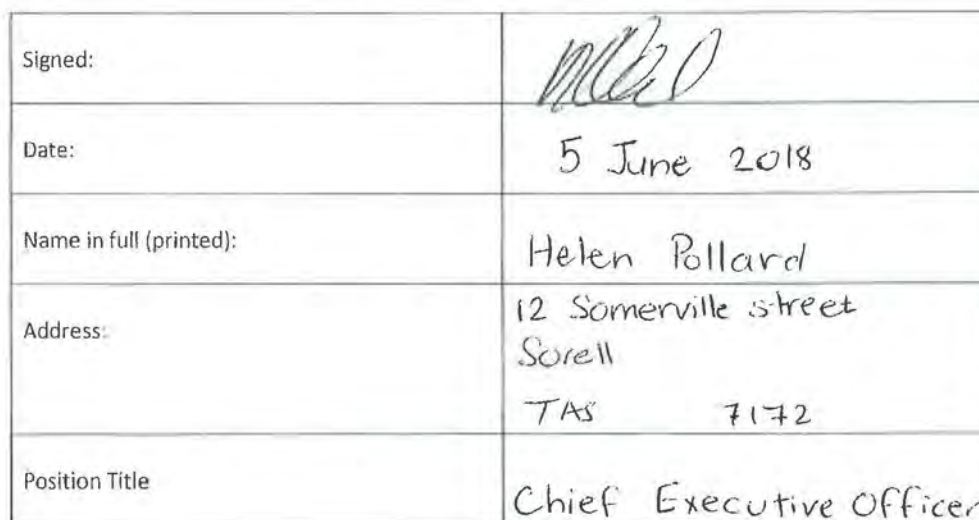 Signed:
Date:
5 June 2018
Name in full (printed):
Helen Pollard
Address:
12 Somerville street
Sorell
TAS 7172
Position Title
Chief Executive Officer